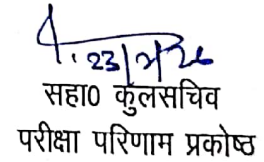 23/2/26
सहा0 कुलसचिव
परीक्षा परिणाम प्रकोष्ठ